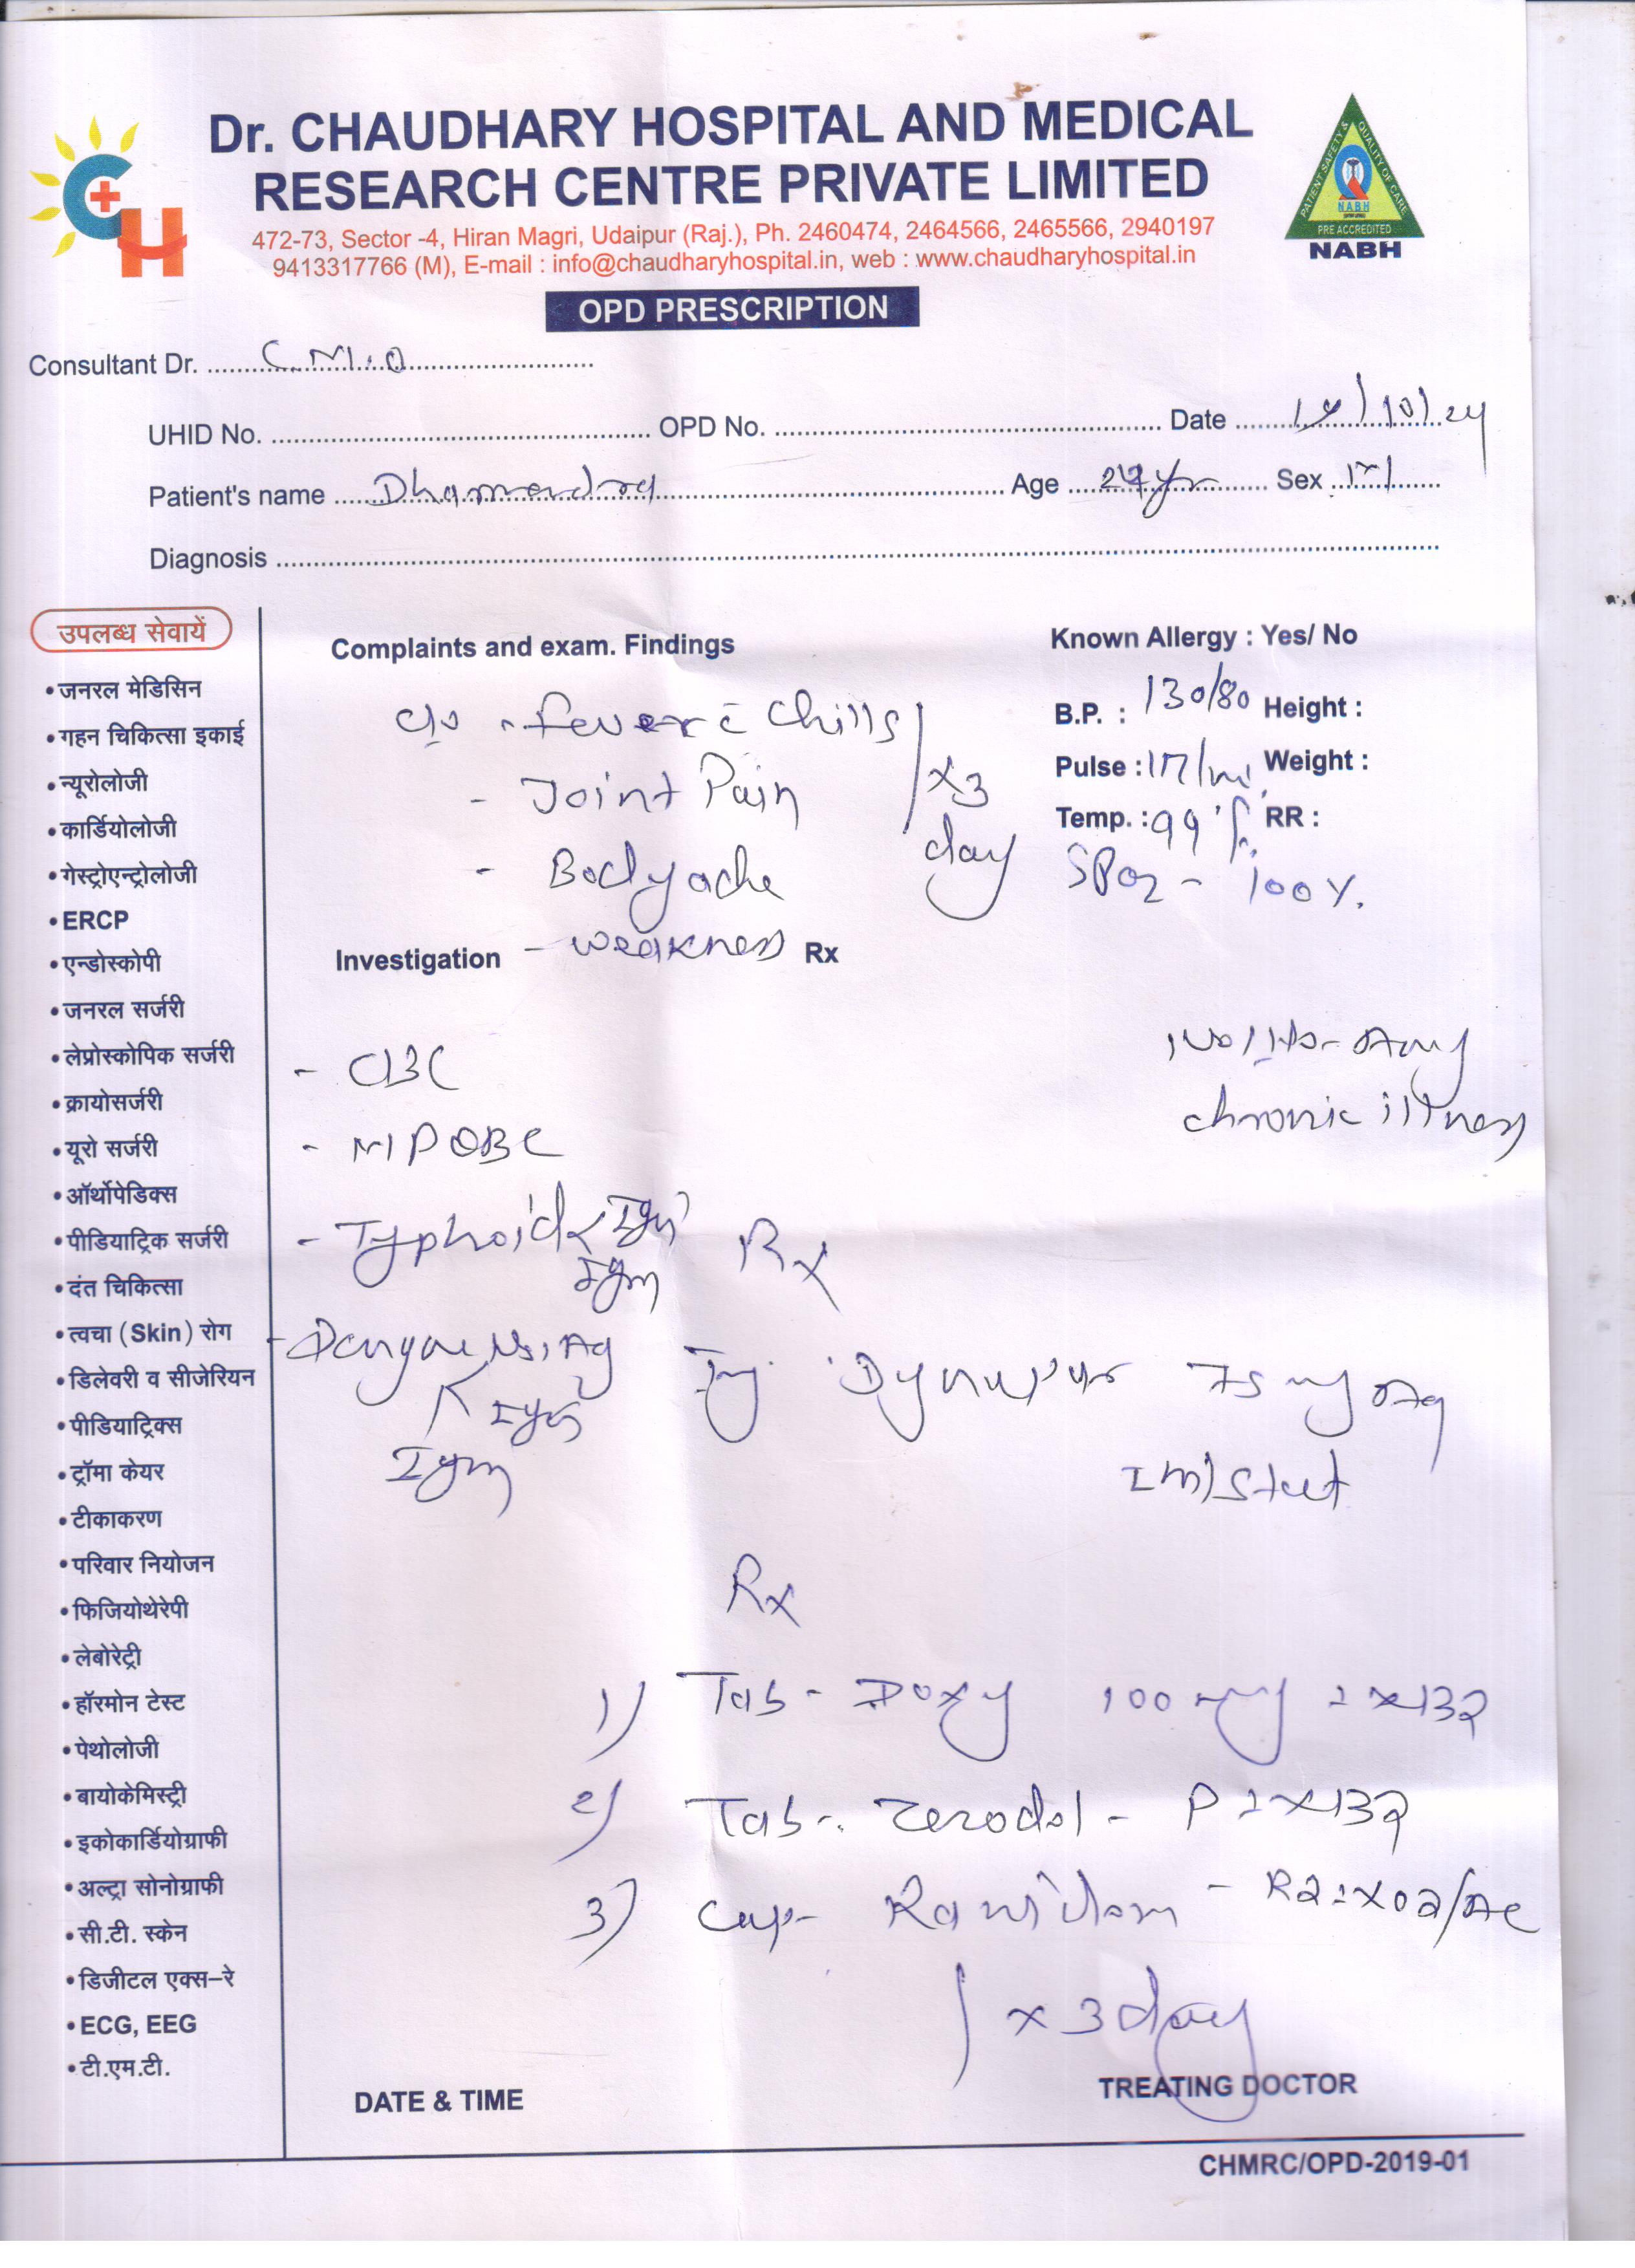 Dr. CHAUDHARY HOSPITAL AND MEDICAL
RESEARCH CENTRE PRIVATE LIMITED
472-73, Sector -4, Hiran Magri, Udaipur (Raj.), Ph. 2460474, 2464566, 2465566, 2940197
9413317766 (M), E-mail : info@chaudharyhospital.in, web : www.chaudharyhospital.in
PATIENT SAFETY & QUALITY OF CARE
NABH
PRE ACCREDITED
NABH
OPD PRESCRIPTION
Consultant Dr. C.M.O
UHID No. OPD No. Date /10/24
Patient's name Dhamendra Age Sex M
Diagnosis
उपलब्ध सेवायें
• जनरल मेडिसिन
• गहन चिकित्सा इकाई
• न्यूरोलोजी
• कार्डियोलोजी
• गेस्ट्रोएन्ट्रोलोजी
• ERCP
• एन्डोस्कोपी
• जनरल सर्जरी
• लेप्रोस्कोपिक सर्जरी
• क्रायोसर्जरी
• यूरो सर्जरी
• ऑर्थोपेडिक्स
• पीडियाट्रिक सर्जरी
• दंत चिकित्सा
• त्वचा (Skin) रोग
• डिलेवरी व सीजेरियन
• पीडियाट्रिक्स
• ट्रॉमा केयर
• टीकाकरण
• परिवार नियोजन
• फिजियोथेरेपी
• लेबोरेट्री
• हॉरमोन टेस्ट
• पेथोलोजी
• बायोकेमिस्ट्री
• इकोकार्डियोग्राफी
• अल्ट्रा सोनोग्राफी
• सी.टी. स्केन
• डिजीटल एक्स-रे
• ECG, EEG
• टी.एम.टी.
Complaints and exam. Findings
c/o - fever c̄ chills
- Joint Pain
x3
day
- Bodyache
- weakness
Known Allergy : Yes/ No
B.P. : 130/80 Height :
Pulse : Weight :
Temp. : 99°f. RR :
SPO2 - 100%.
Investigation Rx
No H/o- Any
chronic illness
- CBC
- MPQBC
- Typhoid IgG
IgM
- Dengue NS1 Ag
IgG
IgM
Rx
Inj Dynapar 75mg
IM/Stat
Rx
1) Tab - Doxy 100 mg
2) Tab - Zerodol - P
3) Cap-
x 3 day
DATE & TIME
TREATING DOCTOR
CHMRC/OPD-2019-01